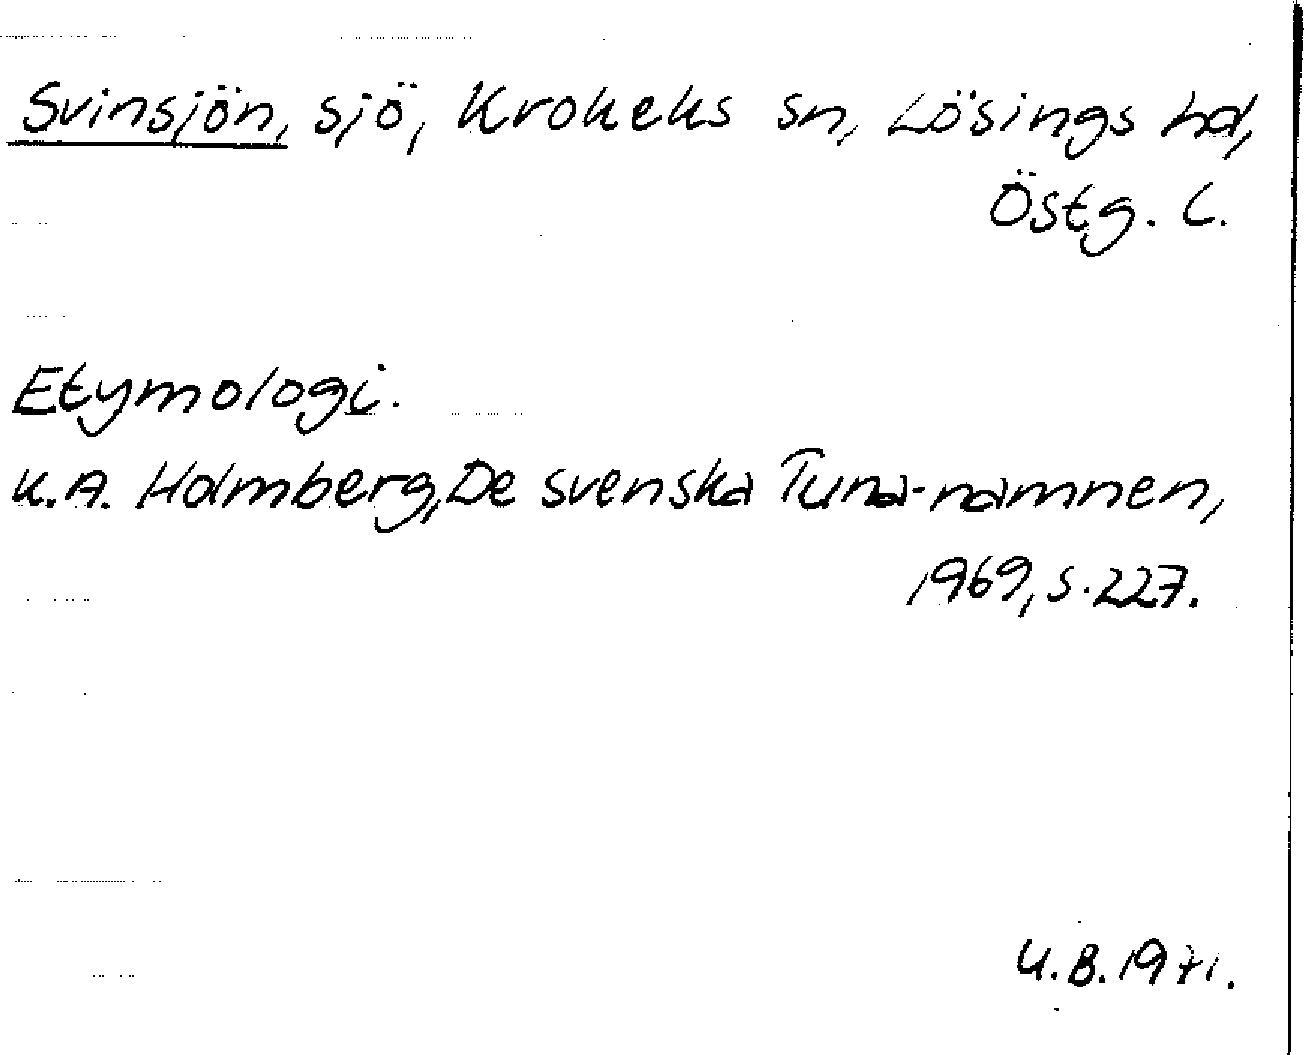 Svinsjön, sjö, Krokeks sn, Lösings hd,
Östg. l.
Etymologi.
K.A. Holmberg, De svenska Tuna-namnen,
1969, s. 227.
U.B. 1971.